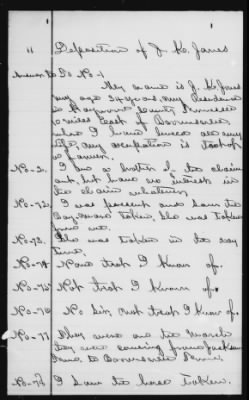 11 Deposition of J. K. Jones
Answer to Int No-1
My name is J. K. Jones
my age 34 years, my Residence
is Haywood County Tennessee
miles East of Brownsville
where I have lived all my
life, my occupation is that of
a farmer.
No-2. I am a brother of the claim
ant, but have no interest in
the claim whatever.
No-72. I was present and saw the
Bay mare taken, she was taken
from me.
No-73. She was taken in the day
time.
No-74 None that I know of.
No-75 Not that I know of.
No-76 No Sir, not that I know of.
No-77 They were on the march
they was coming from Jackson
Tenn. to Brownsville Tenn.
No-78 I saw the horse taken.